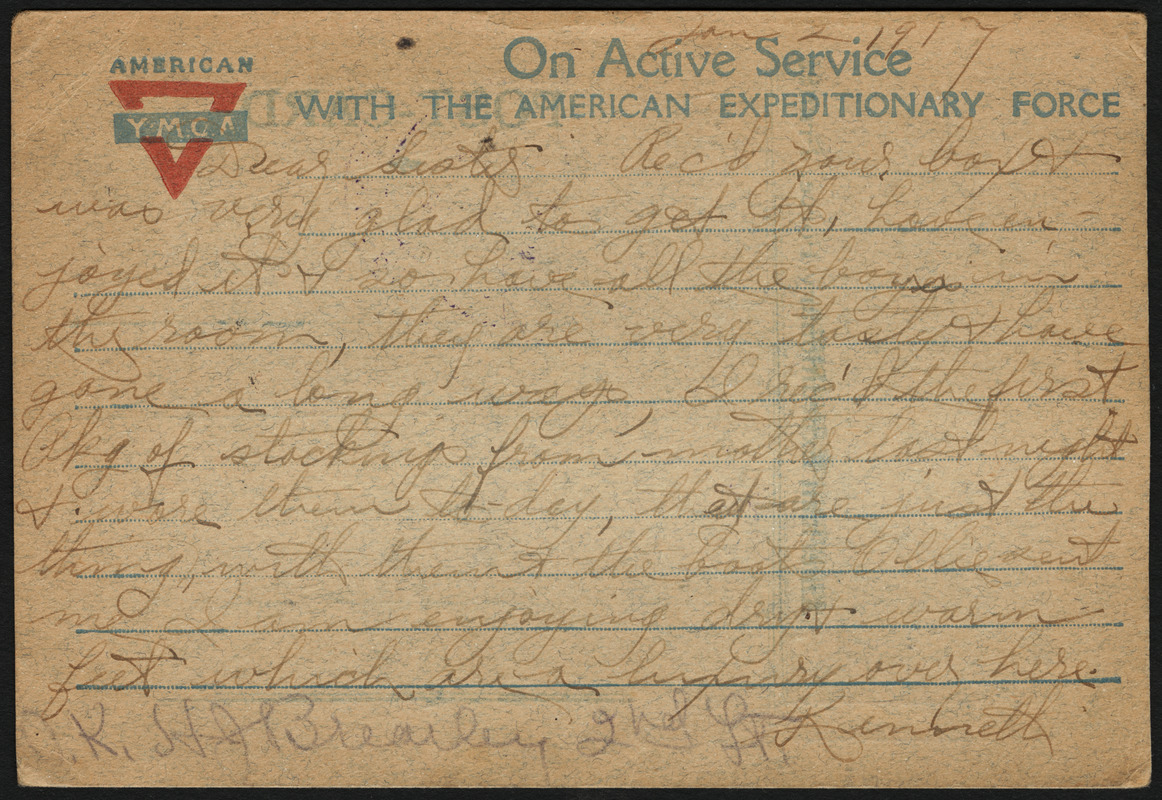 Jan 2 1917
AMERICAN
Y.M.C.A
On Active Service
WITH THE AMERICAN EXPEDITIONARY FORCE
Dear Sister Rec'd your box &
was very glad to get it, have en-
joyed it & so have all the boys in
the room, they are very tasty & have
gone a long ways, I rec'd the first
Pkg of stockings from mother last night
& wore them to-day, that are just the
thing, with them & the boots Ollie sent
me I am enjoying dry & warm-
feet which are a luxury over here.
Kenneth
O.K. H J Brearley 2nd Lt.